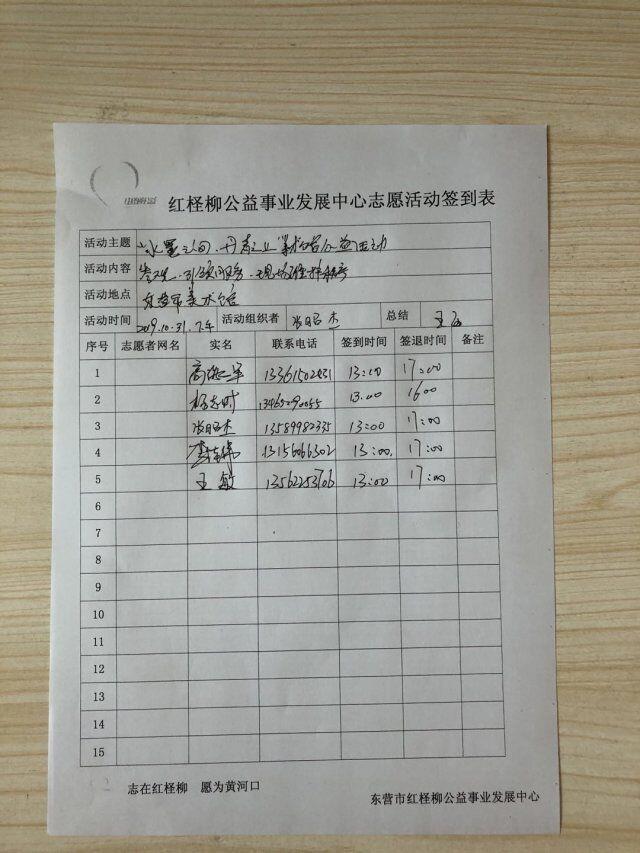 红柽柳公益事业发展中心志愿活动签到表
活动主题 水墨之间·丹青之业"美术馆公益活动
活动内容 引领服务·现场维持秩序
活动地点 东营市美术馆
活动时间 2019.10.31.下午 活动组织者 总结 王
序号 志愿者网名 实名 联系电话 签到时间 签退时间 备注
1 13361502831 13:00 17:00
2 13465290055 13:00 1600
3 13589982335 13:00 17:00
4 13156066302 13:00 17:00
5 王敏 13562253706 13:00 17:00
6
7
8
9
10
11
12
13
14
15
志在红柽柳 愿为黄河口
东营市红柽柳公益事业发展中心